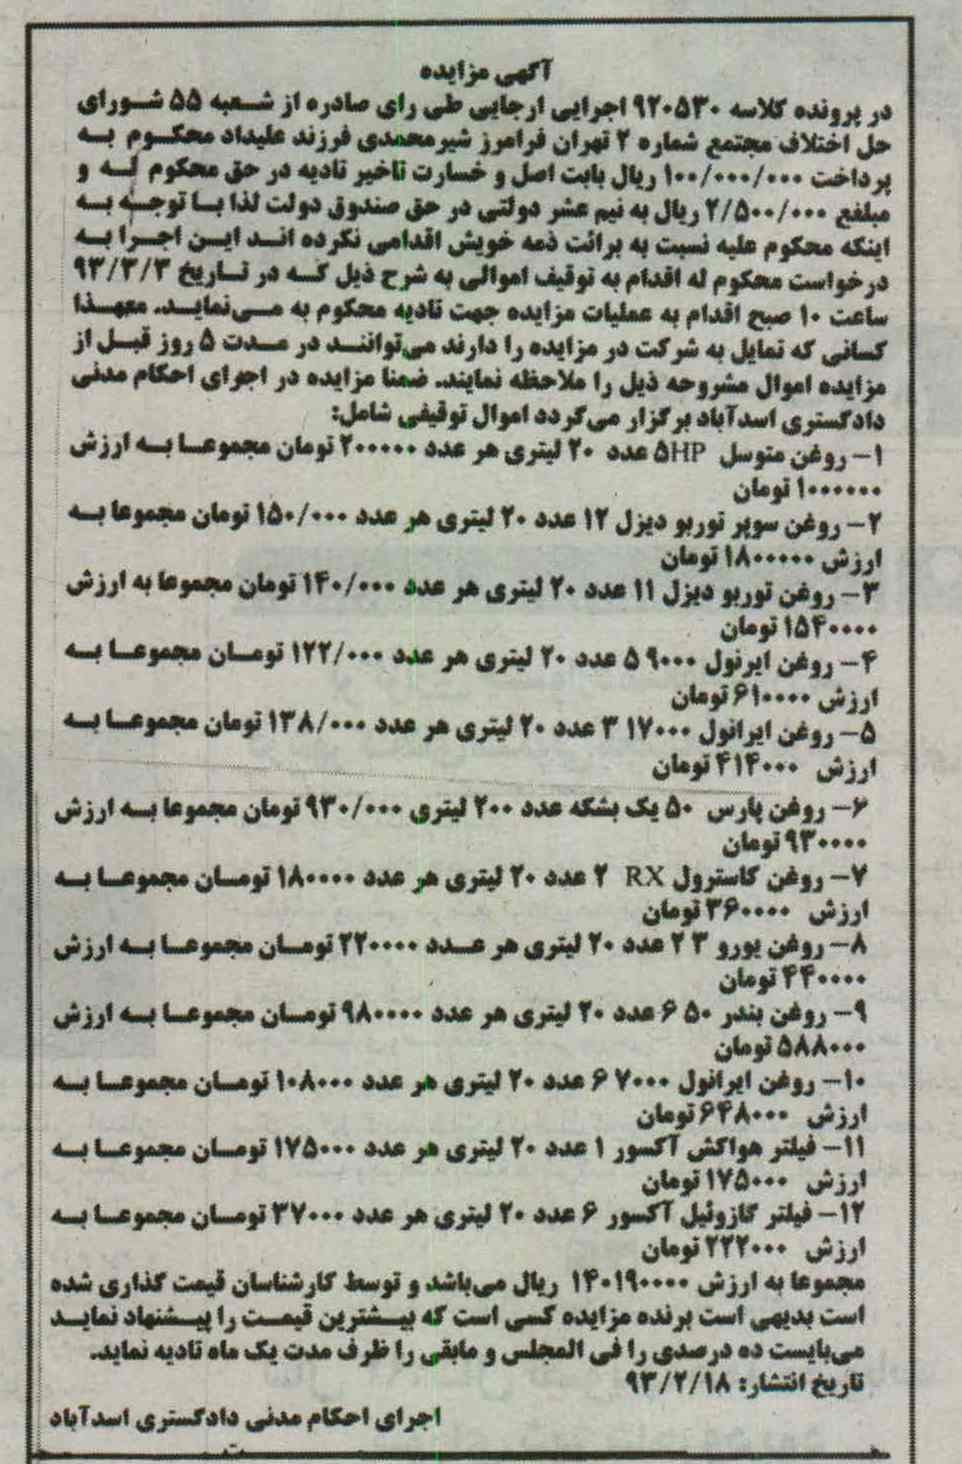 آگهی مزایده
در پرونده کلاسه ۹۲۰۵۳۰ اجرایی ارجایی طی رای صادره از شعبه ۵۵ شورای
حل اختلاف مجتمع شماره ۲ تهران فرامرز شیرمحمدی فرزند علیداد محکوم به
پرداخت ۱۰۰/۰۰۰/۰۰۰ ریال بابت اصل و خسارت تاخیر تادیه در حق محکوم له و
مبلفع ۲/۵۰۰/۰۰۰ ریال به نیم عشر دولتی در حق صندوق دولت لذا با توجه به
اینکه محکوم علیه نسبت به برائت ذمه خویش اقدامی نکرده اند این اجرا به
درخواست محکوم له اقدام به توقیف اموالی به شرح ذیل که در تاریخ ۹۳/۳/۳
ساعت ۱۰ صبح اقدام به عملیات مزایده جهت تادیه محکوم به می‌نماید. معهذا
کسانی که تمایل به شرکت در مزایده را دارند می‌توانند در مدت ۵ روز قبل از
مزایده اموال مشروحه ذیل را ملاحظه نمایند. ضمنا مزایده در اجرای احکام مدنی
دادگستری اسدآباد برگزار می‌گردد اموال توقیفی شامل:
۱– روغن متوسل ۵HP عدد ۲۰ لیتری هر عدد ۲۰۰۰۰۰ تومان مجموعا به ارزش
۱۰۰۰۰۰۰ تومان
۲– روغن سوپر توربو دیزل ۱۲ عدد ۲۰ لیتری هر عدد ۱۵۰/۰۰۰ تومان مجموعا به
ارزش ۱۸۰۰۰۰۰ تومان
۳– روغن توربو دیزل ۱۱ عدد ۲۰ لیتری هر عدد ۱۴۰/۰۰۰ تومان مجموعا به ارزش
۱۵۴۰۰۰۰ تومان
۴– روغن ایرنول ۹۰۰۰ ۵ عدد ۲۰ لیتری هر عدد ۱۲۲/۰۰۰ تومان مجموعا به
ارزش ۶۱۰۰۰۰ تومان
۵– روغن ایرانول ۱۷۰۰۰ ۳ عدد ۲۰ لیتری هر عدد ۱۳۸/۰۰۰ تومان مجموعا به
ارزش ۴۱۴۰۰۰ تومان
۶– روغن پارس ۵۰ یک بشکه عدد ۲۰۰ لیتری ۹۳۰/۰۰۰ تومان مجموعا به ارزش
۹۳۰۰۰۰ تومان
۷– روغن کاسترول RX ۲ عدد ۲۰ لیتری هر عدد ۱۸۰۰۰۰ تومان مجموعا به
ارزش ۳۶۰۰۰۰ تومان
۸– روغن یورو ۳ ۲ عدد ۲۰ لیتری هر عدد ۲۲۰۰۰۰ تومان مجموعا به ارزش
۴۴۰۰۰۰ تومان
۹– روغن بندر ۵۰ ۶ عدد ۲۰ لیتری هر عدد ۹۸۰۰۰۰ تومان مجموعا به ارزش
۵۸۸۰۰۰ تومان
۱۰– روغن ایرانول ۷۰۰۰ ۶ عدد ۲۰ لیتری هر عدد ۱۰۸۰۰۰ تومان مجموعا به
ارزش ۶۴۸۰۰۰ تومان
۱۱– فیلتر هواکش آکسور ۱ عدد ۲۰ لیتری هر عدد ۱۷۵۰۰۰ تومان مجموعا به
ارزش ۱۷۵۰۰۰ تومان
۱۲– فیلتر گازوئیل آکسور ۶ عدد ۲۰ لیتری هر عدد ۳۷۰۰۰ تومان مجموعا به
ارزش ۲۲۲۰۰۰ تومان
مجموعا به ارزش ۱۴۰۱۹۰۰۰۰ ریال می‌باشد و توسط کارشناسان قیمت گذاری شده
است بدیهی است برنده مزایده کسی است که بیشترین قیمت را پیشنهاد نماید
می‌بایست ده درصدی را فی المجلس و مابقی را ظرف مدت یک ماه تادیه نماید.
تاریخ انتشار: ۹۳/۲/۱۸
اجرای احکام مدنی دادگستری اسدآباد